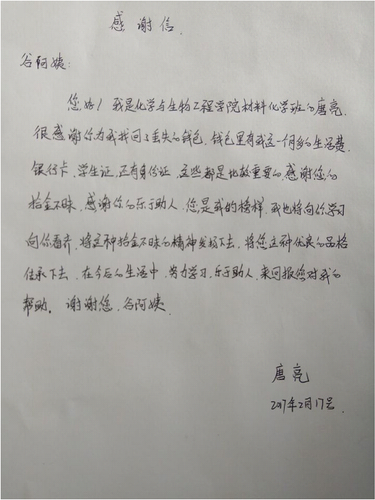 感谢信.
谷阿姨:
您好!我是化学与生物工程学院材料化学班的唐亮,
很感谢你为我找回了丢失的钱包,钱包里有我这一个月的生活费,
银行卡、学生证,还有身份证,这些都是比较重要的,感谢您的
拾金不昧,感谢你的乐于助人,您是我的榜样,我也将向你学习
向你看齐,将这种拾金不昧的精神发扬下去,将您这种优良的品格
传承下去,在今后的生活中,努力学习,乐于助人,来回报您对我的
帮助。谢谢您,谷阿姨.
唐亮
2017年2月17号.